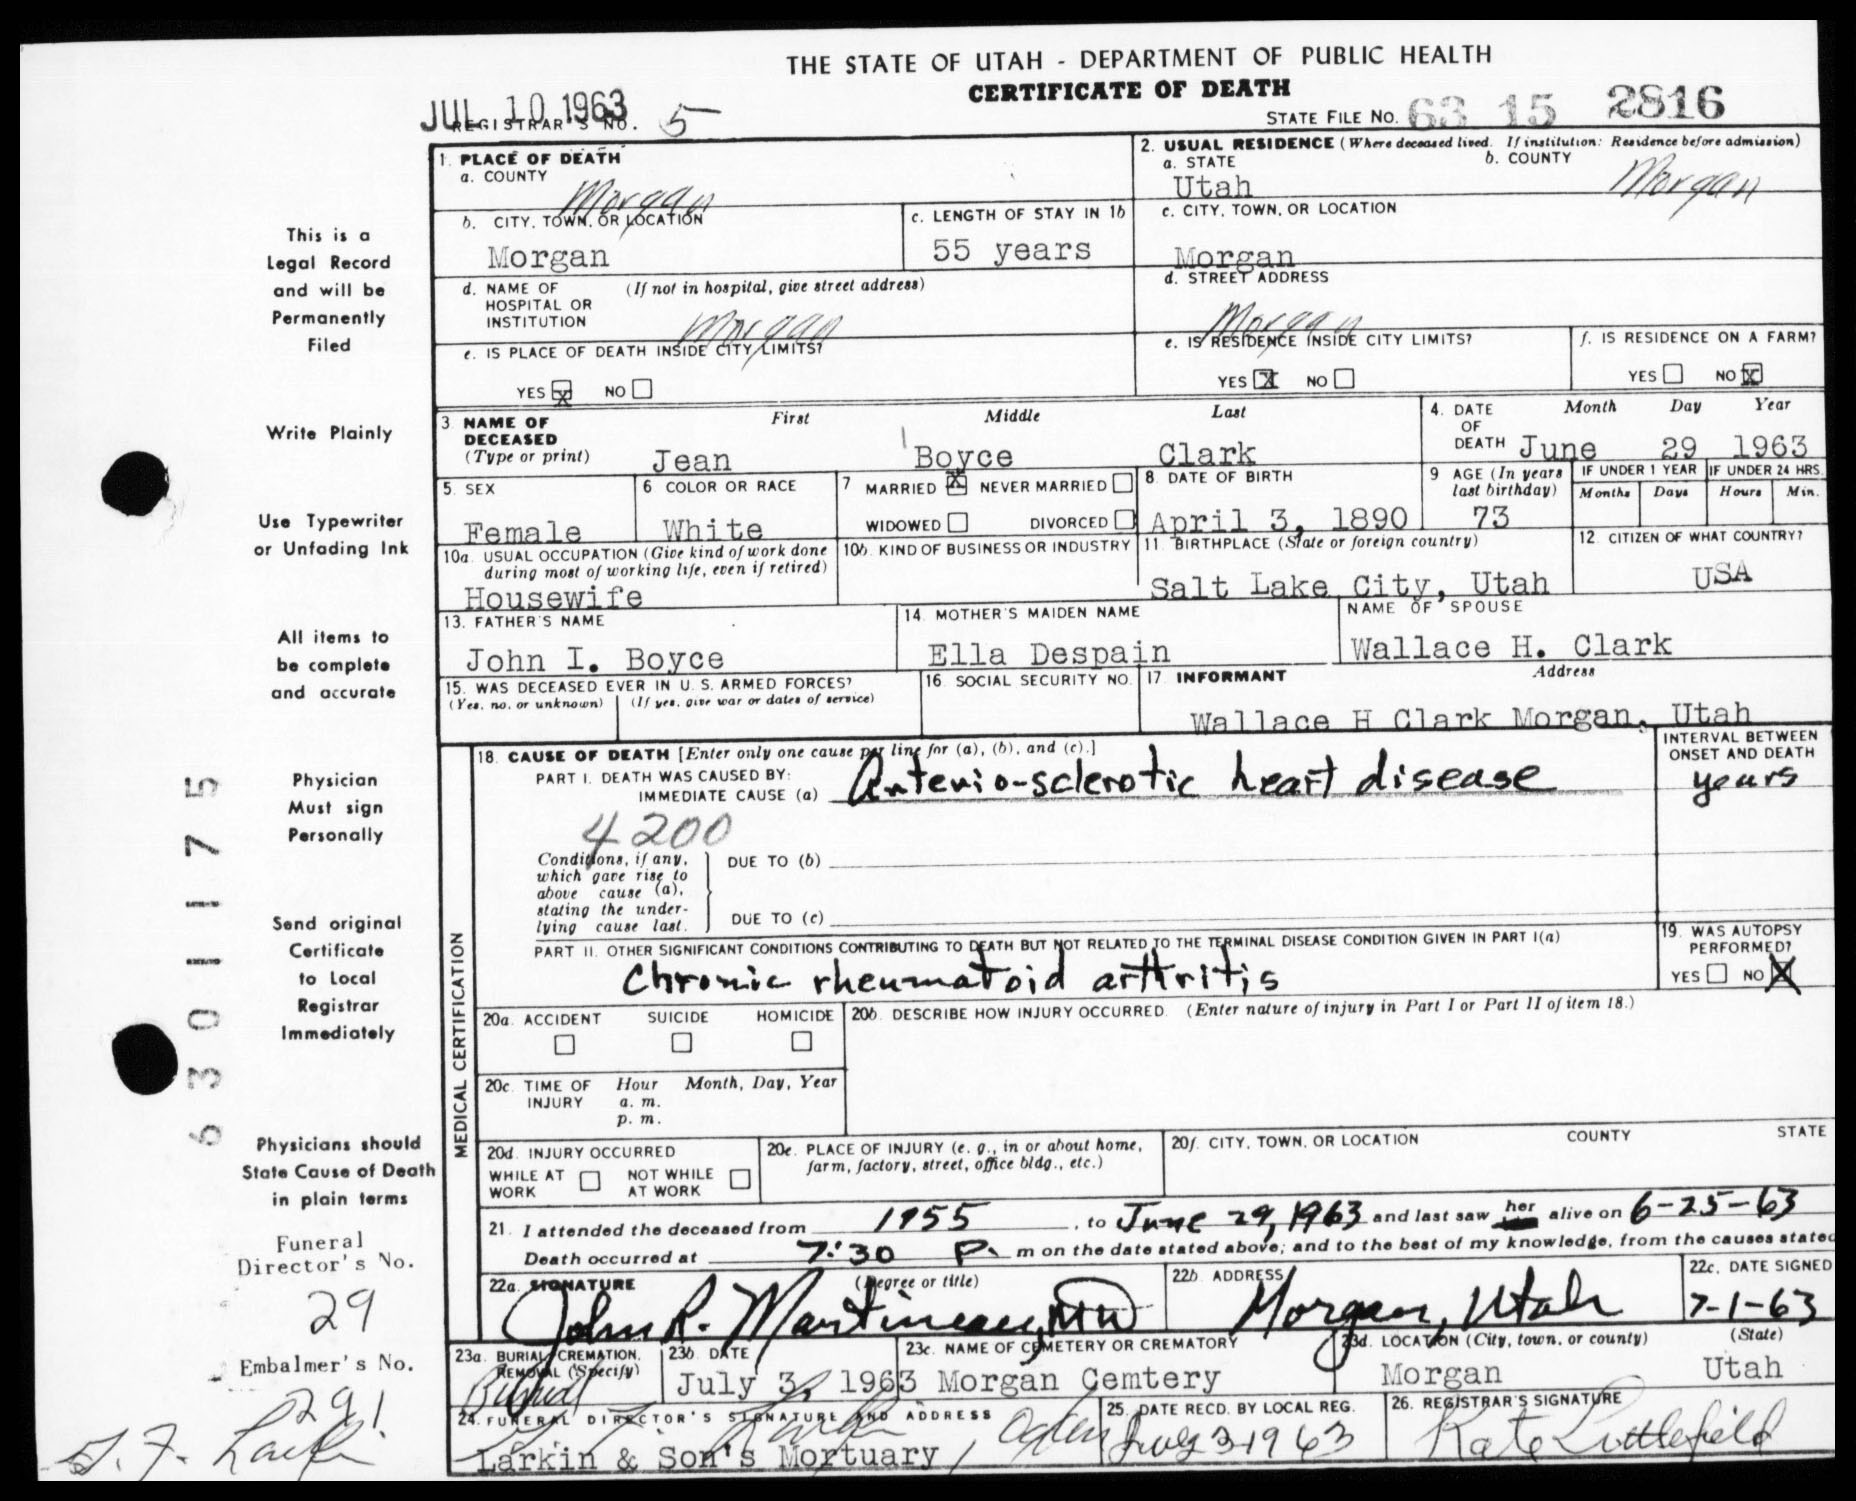 THE STATE OF UTAH - DEPARTMENT OF PUBLIC HEALTH
CERTIFICATE OF DEATH
JUL 10 1963
REGISTRAR'S NO. 5
STATE FILE No. 63 15 2816
1. PLACE OF DEATH
a. COUNTY
Morgan
2. USUAL RESIDENCE (Where deceased lived. If institution: Residence before admission)
a. STATE
Utah
b. COUNTY
Morgan
b. CITY, TOWN, OR LOCATION
Morgan
c. LENGTH OF STAY IN 1b
55 years
c. CITY, TOWN, OR LOCATION
Morgan
d. NAME OF (If not in hospital, give street address)
HOSPITAL OR
INSTITUTION
Morgan
d. STREET ADDRESS
Morgan
e. IS PLACE OF DEATH INSIDE CITY LIMITS?
YES X NO
e. IS RESIDENCE INSIDE CITY LIMITS?
YES X NO
f. IS RESIDENCE ON A FARM?
YES NO X
3 NAME OF
DECEASED
(Type or print)
First Middle Last
Jean Boyce Clark
4. DATE
OF
DEATH
Month Day Year
June 29 1963
5. SEX
Female
6 COLOR OR RACE
White
7 MARRIED X NEVER MARRIED
WIDOWED DIVORCED
8. DATE OF BIRTH
April 3, 1890
9 AGE (In years
last birthday)
73
IF UNDER 1 YEAR
Months Days
IF UNDER 24 HRS.
Hours Min.
10a. USUAL OCCUPATION (Give kind of work done
during most of working life, even if retired)
Housewife
10b. KIND OF BUSINESS OR INDUSTRY
11. BIRTHPLACE (State or foreign country)
Salt Lake City, Utah
12. CITIZEN OF WHAT COUNTRY?
USA
13. FATHER'S NAME
John I. Boyce
14. MOTHER'S MAIDEN NAME
Ella Despain
NAME OF SPOUSE
Wallace H. Clark
15. WAS DECEASED EVER IN U.S. ARMED FORCES?
(Yes, no, or unknown) (If yes, give war or dates of service)
16. SOCIAL SECURITY NO.
17. INFORMANT Address
Wallace H Clark Morgan, Utah
18. CAUSE OF DEATH [Enter only one cause per line for (a), (b), and (c).]
PART I. DEATH WAS CAUSED BY:
IMMEDIATE CAUSE (a) Arterio-sclerotic heart disease
INTERVAL BETWEEN
ONSET AND DEATH
years
4200
Conditions, if any,
which gave rise to
above cause (a),
stating the under-
lying cause last.
DUE TO (b)
DUE TO (c)
PART II. OTHER SIGNIFICANT CONDITIONS CONTRIBUTING TO DEATH BUT NOT RELATED TO THE TERMINAL DISEASE CONDITION GIVEN IN PART I(a)
Chronic rheumatoid arthritis
19. WAS AUTOPSY
PERFORMED?
YES NO X
MEDICAL CERTIFICATION
20a. ACCIDENT SUICIDE HOMICIDE
20b. DESCRIBE HOW INJURY OCCURRED. (Enter nature of injury in Part I or Part II of item 18.)
20c. TIME OF Hour Month, Day, Year
INJURY a. m.
p. m.
20d. INJURY OCCURRED
WHILE AT NOT WHILE
WORK AT WORK
20e. PLACE OF INJURY (e. g., in or about home,
farm, factory, street, office bldg., etc.)
20f. CITY, TOWN, OR LOCATION COUNTY STATE
21. I attended the deceased from 1955, to June 29, 1963 and last saw her alive on 6-25-63
Death occurred at 7:30 P. m on the date stated above; and to the best of my knowledge, from the causes stated
22a. SIGNATURE (Degree or title)
John R. Martineau, MD
22b. ADDRESS
Morgan, Utah
22c. DATE SIGNED
7-1-63
23a. BURIAL, CREMATION,
REMOVAL (Specify)
Burial
23b. DATE
July 3, 1963
23c. NAME OF CEMETERY OR CREMATORY
Morgan Cemtery
23d. LOCATION (City, town, or county) (State)
Morgan Utah
24. FUNERAL DIRECTOR'S SIGNATURE AND ADDRESS
Larkin & Son's Mortuary, Ogden
25. DATE RECD. BY LOCAL REG.
July 3-1963
26. REGISTRAR'S SIGNATURE
Kate Littlefield
This is a
Legal Record
and will be
Permanently
Filed
Write Plainly
Use Typewriter
or Unfading Ink
All items to
be complete
and accurate
Physician
Must sign
Personally
Send original
Certificate
to Local
Registrar
Immediately
Physicians should
State Cause of Death
in plain terms
Funeral
Director's No.
29
Embalmer's No.
291
G. F. Larkin
63011175